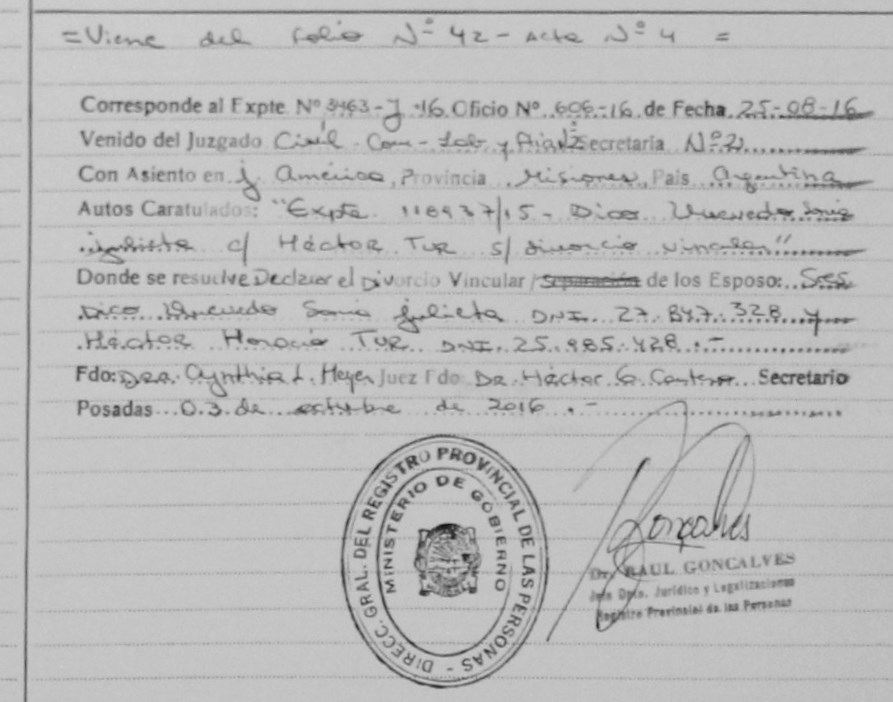 = Viene del Folio Nº 42 - Acta Nº 4 =
Corresponde al Expte Nº 3463-J-16. Oficio Nº 606-16 de Fecha 25-08-16
Venido del Juzgado Civil Com - Lab y Secretaria Nº 2
Con Asiento en J. América, Provincia Misiones, Pais Argentina
Autos Caratulados: "Expte 118937/15 - Dico
Julieta c/ Héctor TUR s/ divorcio vincular"
Donde se resuelve Declarar el Divorcio Vincular / separación de los Esposo: Sres
Dico Sonia Julieta DNI. 27.847.328 y
Héctor Horacio TUR DNI. 25.985.428.-
Fdo: Dra. Cynthia L. Heyer Juez Fdo Dr. Héctor G. Secretario
Posadas 03 de octubre de 2016.-
DIRECC. GRAL. DEL REGISTRO PROVINCIAL DE LAS PERSONAS -
MINISTERIO DE GOBIERNO
Gonçalves
Dr. RAUL GONCALVES
Jefe Dpto. Jurídico y Legalizaciones
Registro Provincial de las Personas